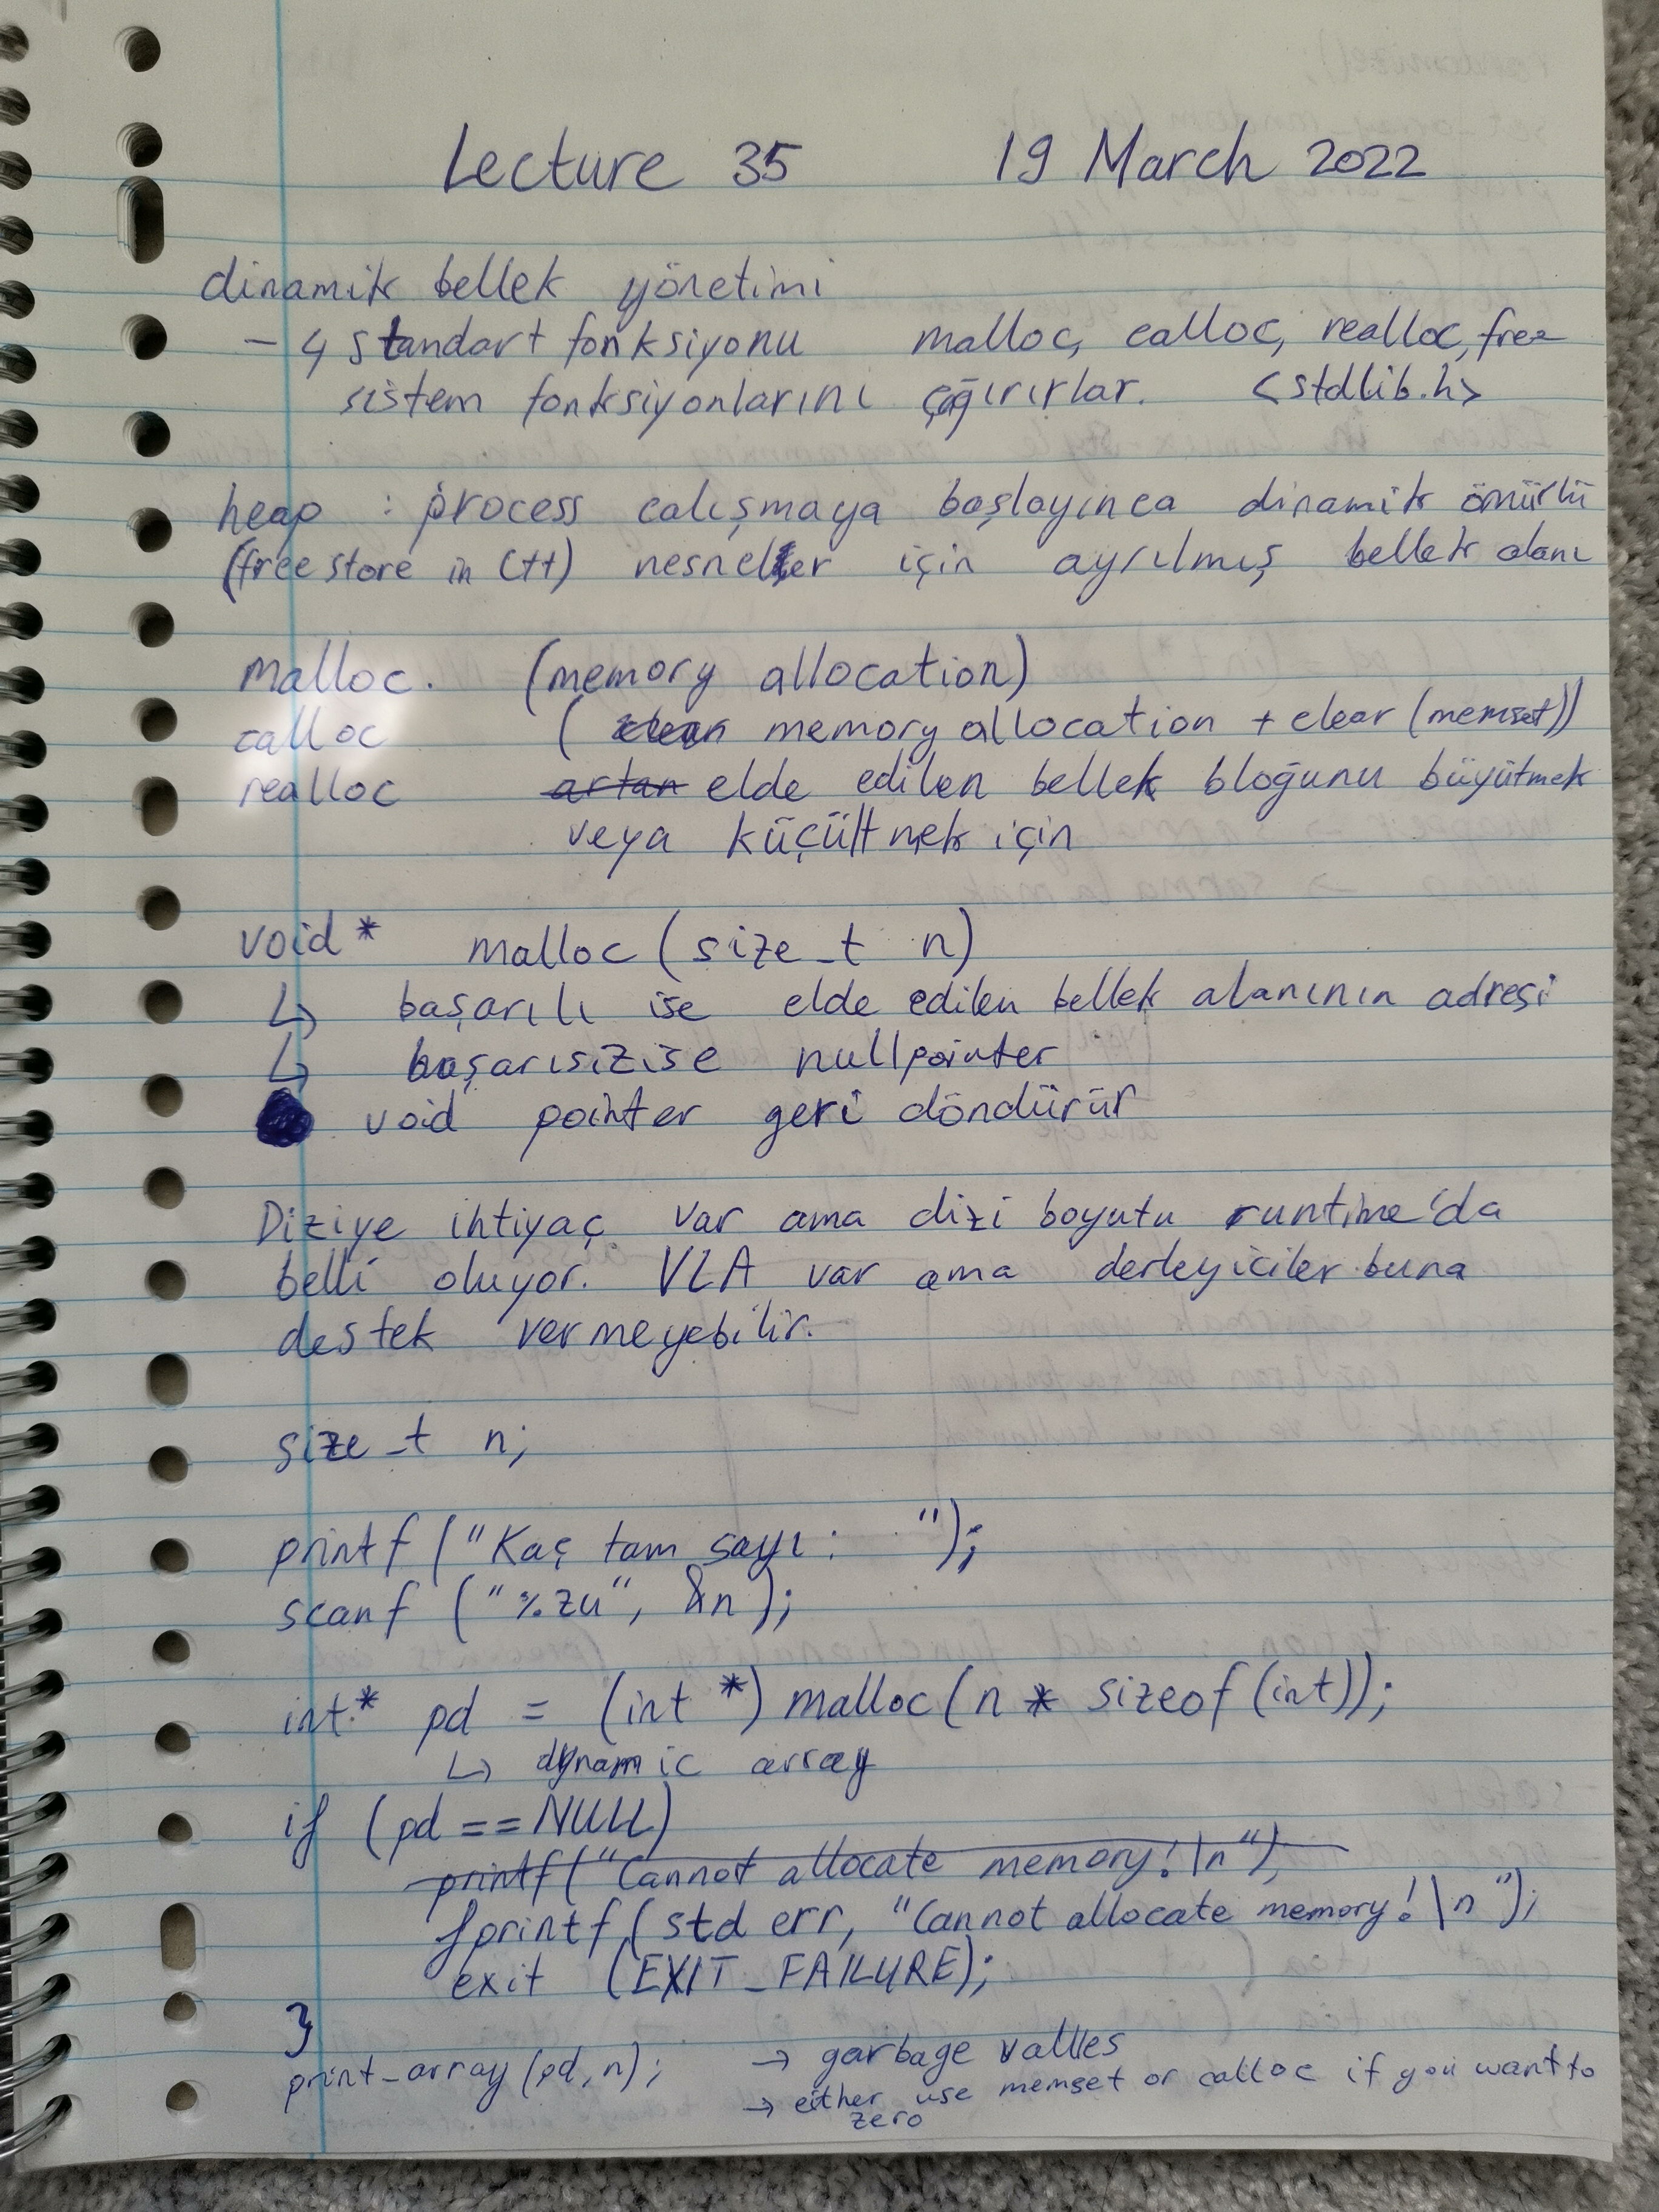 Lecture 35 19 March 2022
dinamik bellek yönetimi
- 4 standart fonksiyonu malloc, calloc, realloc, free
sistem fonksiyonlarını çağırırlar. <stdlib.h>
heap : process calışmaya başlayınca dinamik ömürlü
(free store in C++) nesneler için ayrılmış bellek alanı
malloc. (memory allocation)
calloc ( clear memory allocation + clear (memset))
realloc artan elde edilen bellek bloğunu büyütmek
veya küçültmek için
void * malloc (size_t n)
↳ başarılı ise elde edilen bellek alanının adresi
↳ başarısızise nullpointer
void pointer geri döndürür
Diziye ihtiyaç var ama dizi boyutu runtime'da
belli oluyor. VLA var ama derleyiciler buna
destek vermeyebilir.
size_t n;
printf ("Kaç tam sayı : ");
scanf ("%zu", &n);
int* pd = (int *) malloc (n * sizeof (int));
↳ dynamic array
if (pd == NULL)
printf ("Cannot allocate memory! \n");
fprintf (std err, "Cannot allocate memory! \n");
exit (EXIT_FAILURE);
}
print_array (pd, n); → garbage values
→ either use memset or calloc if you want to
zero